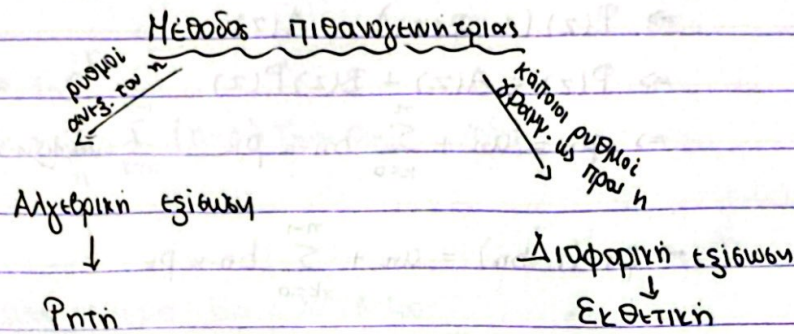 Μέθοδος πιθανογεννήτριας
ρυθμοί
ανεξ. του n
κάποιοι ρυθμοί
γραμμ. ως προς n
Αλγεβρική εξίσωση
↓
Ρητή
Διαφορική εξίσωση
↓
Εκθετική